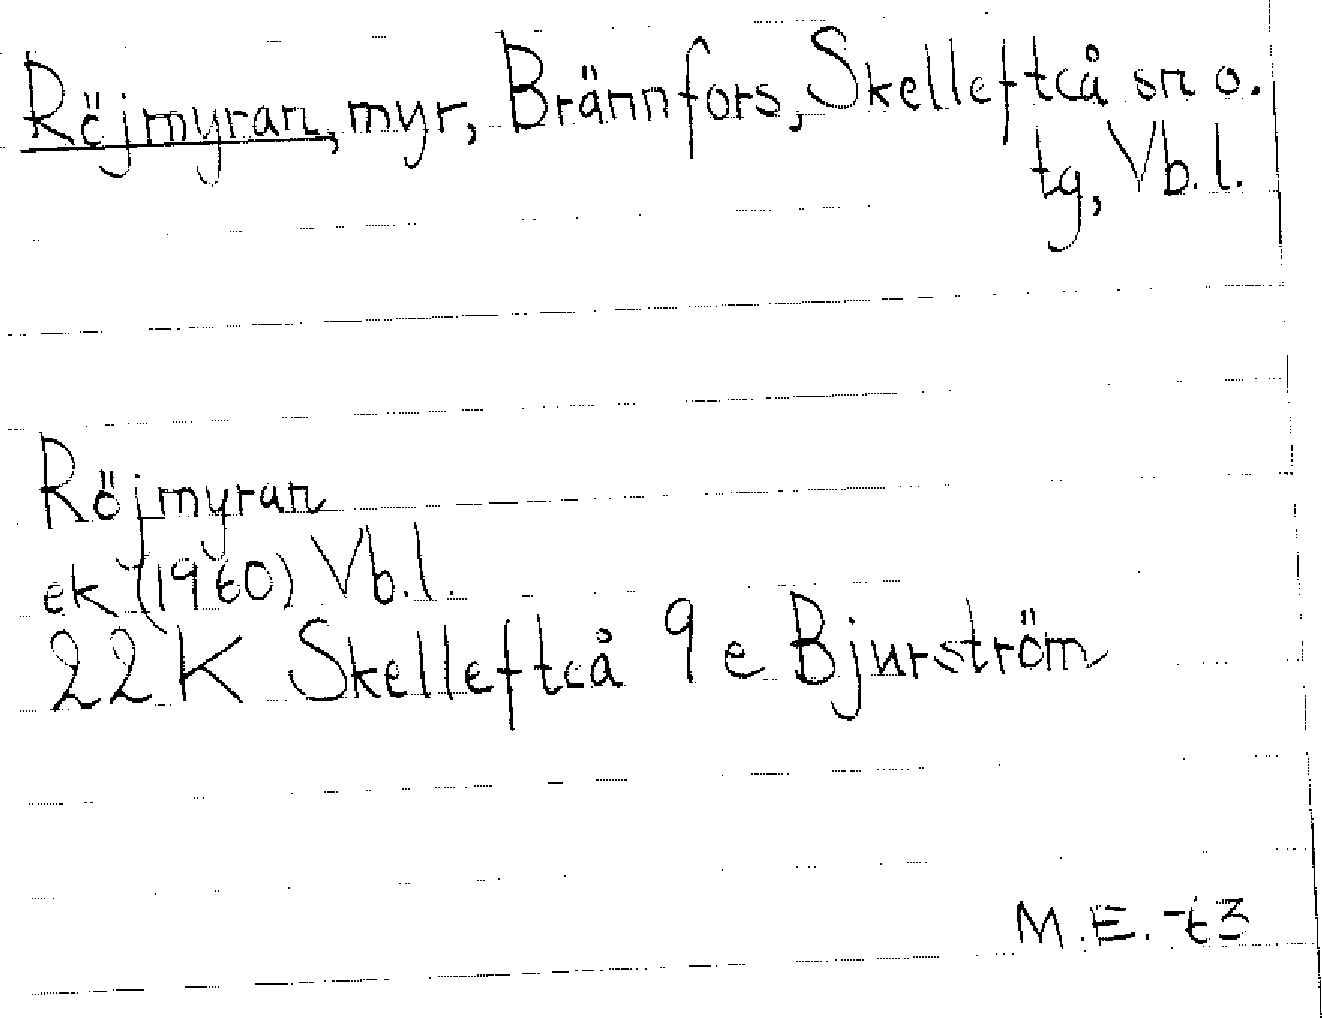 Röjmyran, myr, Brännfors, Skellefteå sn o.
tg, Vb. l.
Röjmyran
ek (1960) Vb. l.
22 K Skellefteå 9 e Bjurström
M.E. -63